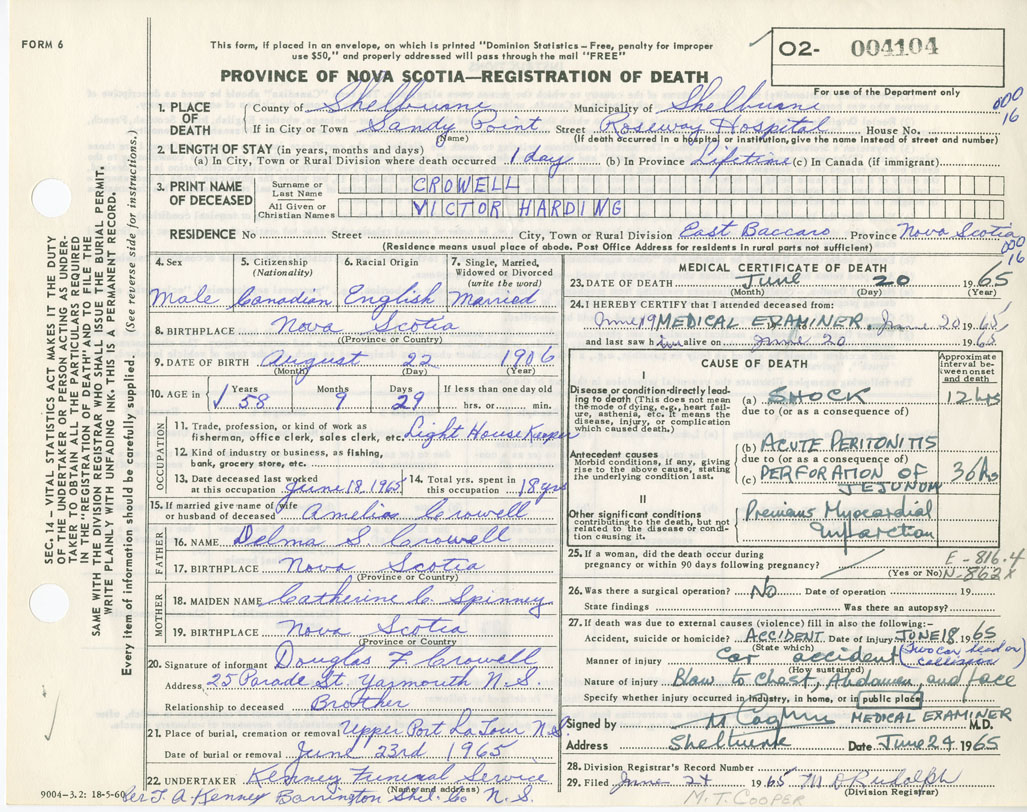 FORM 6
This form, if placed in an envelope, on which is printed "Dominion Statistics—Free, penalty for improper
use $50," and properly addressed will pass through the mail "FREE"
O2- 004104
For use of the Department only
PROVINCE OF NOVA SCOTIA—REGISTRATION OF DEATH
000
16
1. PLACE OF DEATH County of Shelburne Municipality of Shelburne
If in City or Town Sandy Point Street Roseway Hospital House No.
(Name) (If death occurred in a hospital or institution, give the name instead of street and number)
2. LENGTH OF STAY (in years, months and days)
(a) In City, Town or Rural Division where death occurred 1 day (b) In Province Lifetime (c) In Canada (if immigrant)
3. PRINT NAME OF DECEASED
Surname or Last Name CROWELL
All Given or Christian Names VICTOR HARDING
RESIDENCE No Street City, Town or Rural Division East Baccaro Province Nova Scotia
(Residence means usual place of abode. Post Office Address for residents in rural parts not sufficient)
000
16
4. Sex Male
5. Citizenship (Nationality) Canadian
6. Racial Origin English
7. Single, Married, Widowed or Divorced (write the word) Married
8. BIRTHPLACE Nova Scotia
(Province or Country)
9. DATE OF BIRTH August 22 1906
(Month) (Day) (Year)
10. AGE in Years 58 Months 9 Days 29 If less than one day old hrs. or min.
OCCUPATION
11. Trade, profession, or kind of work as
fisherman, office clerk, sales clerk, etc. Light House Keeper
12. Kind of industry or business, as fishing,
bank, grocery store, etc.
13. Date deceased last worked at this occupation June 18, 1965
14. Total yrs. spent in this occupation 18 yrs
15. If married give name of wife or husband of deceased Amelia Crowell
FATHER
16. NAME Delma S. Crowell
17. BIRTHPLACE Nova Scotia
(Province or Country)
MOTHER
18. MAIDEN NAME Catherine C. Spinney
19. BIRTHPLACE Nova Scotia
(Province or Country)
20. Signature of informant Douglas F. Crowell
Address 25 Parade St. Yarmouth N.S.
Relationship to deceased Brother
21. Place of burial, cremation or removal Upper Port La Tour N.S.
Date of burial or removal June 23rd 1965
22. UNDERTAKER Kenney Funeral Service
(Name and address)
9004-3.2: 18-5-60 Per T. A. Kenney Barrington Shel. Co N.S.
MEDICAL CERTIFICATE OF DEATH
23. DATE OF DEATH June 20 1965
(Month) (Day) (Year)
24. I HEREBY CERTIFY that I attended deceased from:
June 19 MEDICAL EXAMINER June 20 1965
and last saw him alive on June 20 1965
CAUSE OF DEATH
Approximate interval between onset and death
I
Disease or condition directly leading to death (This does not mean the mode of dying, e.g., heart failure, asthenia, etc. It means the disease, injury, or complication which caused death.)
(a) SHOCK 12 hrs
due to (or as a consequence of)
Antecedent causes
Morbid conditions, if any, giving rise to the above cause, stating the underlying condition last.
(b) ACUTE PERITONITIS
due to (or as a consequence of)
(c) PERFORATION OF JEJUNUM 36 hs
II
Other significant conditions contributing to the death, but not related to the disease or condition causing it.
Previous Myocardial
Infarction
25. If a woman, did the death occur during
pregnancy or within 90 days following pregnancy?
(Yes or No)
E-816.4
N-862X
26. Was there a surgical operation? No Date of operation 19
State findings Was there an autopsy?
27. If death was due to external causes (violence) fill in also the following:—
Accident, suicide or homicide? ACCIDENT Date of injury JUNE 18 1965
(State which)
Manner of injury car accident (Two car head on collision)
(How sustained)
Nature of injury Blow to Chest, Abdomen, and face
Specify whether injury occurred in industry, in home, or in public place
Signed by MEDICAL EXAMINER M.D.
Address Shelburne Date June 24 1965
28. Division Registrar's Record Number
29. Filed June 24 1965 M D Rudolph
(Division Registrar)
M. T. COOPER
SEC. 14 - VITAL STATISTICS ACT MAKES IT THE DUTY
OF THE UNDERTAKER OR PERSON ACTING AS UNDER-
TAKER TO OBTAIN ALL THE PARTICULARS REQUIRED
IN THE "REGISTRATION OF DEATH" AND TO FILE THE
SAME WITH THE DIVISION REGISTRAR WHO SHALL ISSUE THE BURIAL PERMIT.
WRITE PLAINLY WITH UNFADING INK-THIS IS A PERMANENT RECORD.
Every item of information should be carefully supplied. (See reverse side for instructions.)